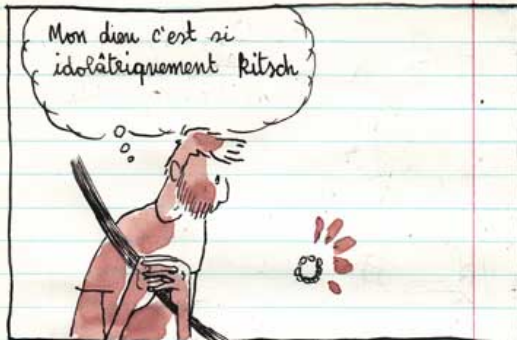 Mon dieu c'est si
idolâtriquement kitsch